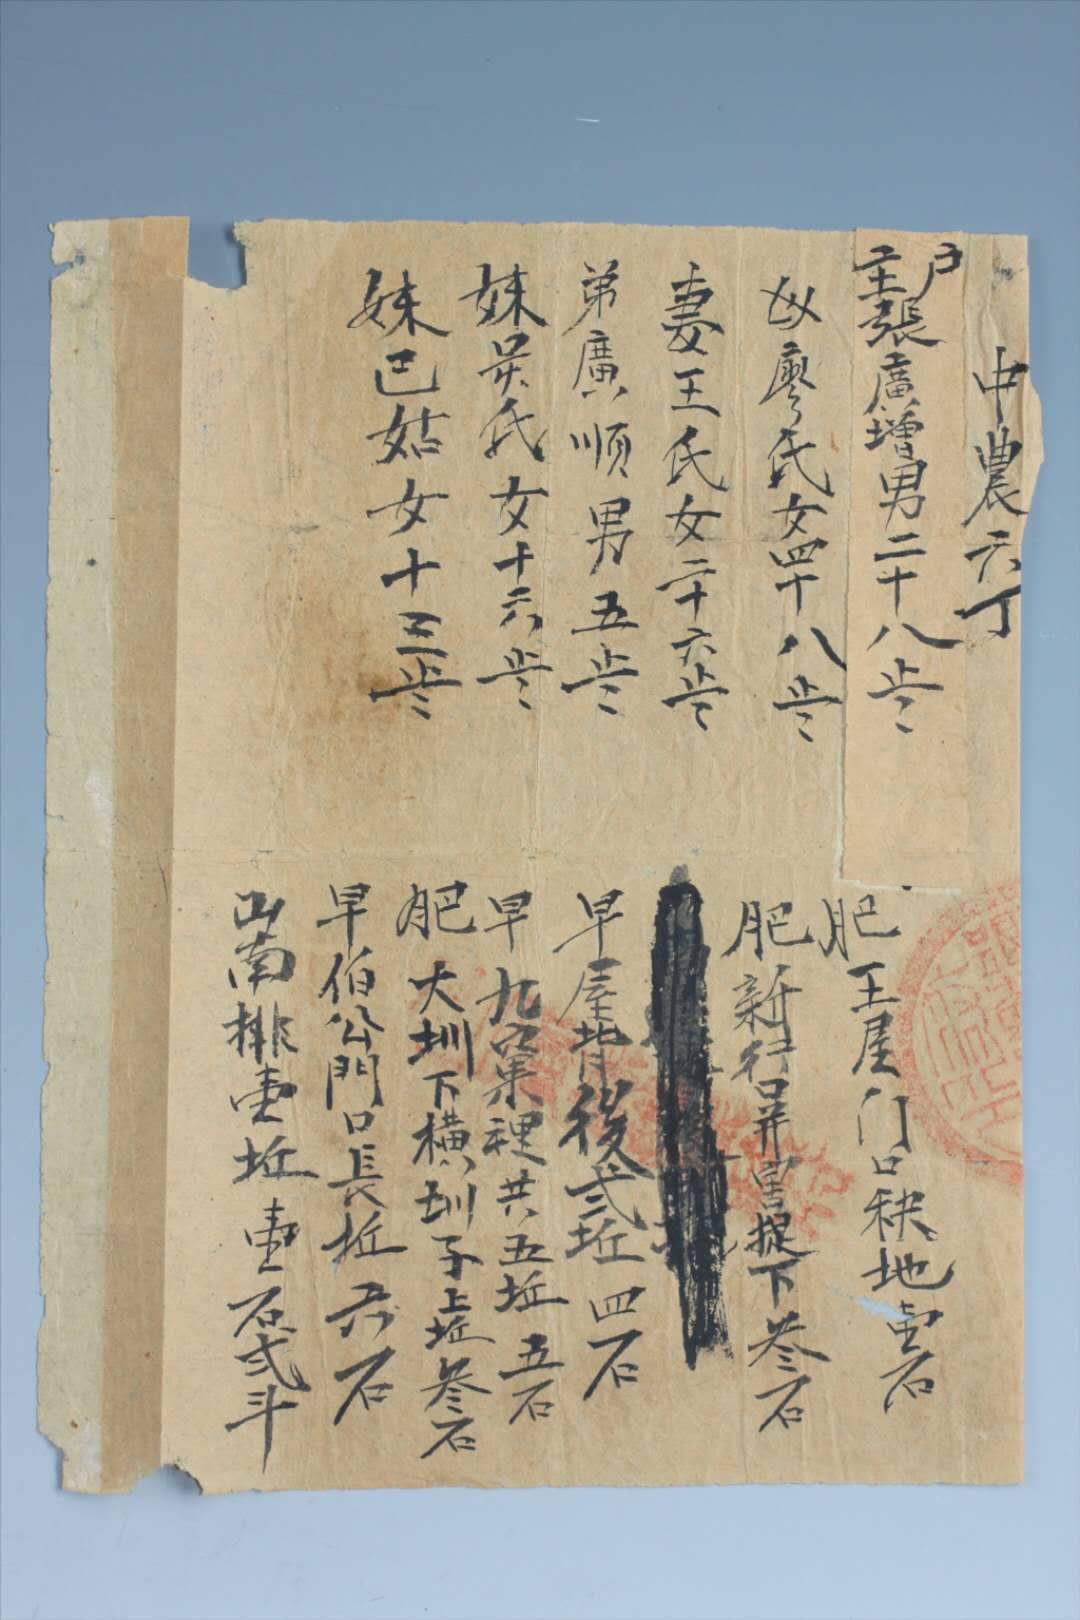 中農六丁
戶主張廣增男二十八歲
母廖氏女四十八歲
妻王氏女二十六歲
弟廣順男五歲
妹吴氏女十六歲
妹已姑女十三歲
肥王屋门口秧地壹石
肥新行口井窖捉下叁石
早屋背後弍坵四石
早九窠裡共五坵五石
肥大圳下横圳子上坵叁石
早伯公門口長坵六石
山南排壹坵壹石弍斗